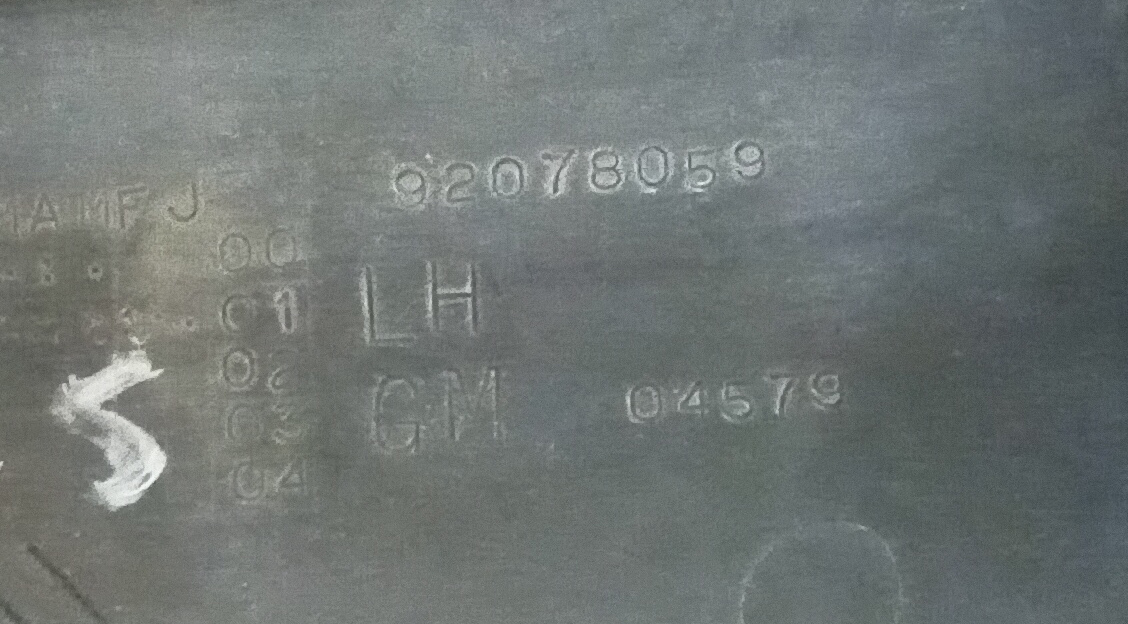 92078059
MAMFJ
00
01 LH
02
03 GM 04579
04
S